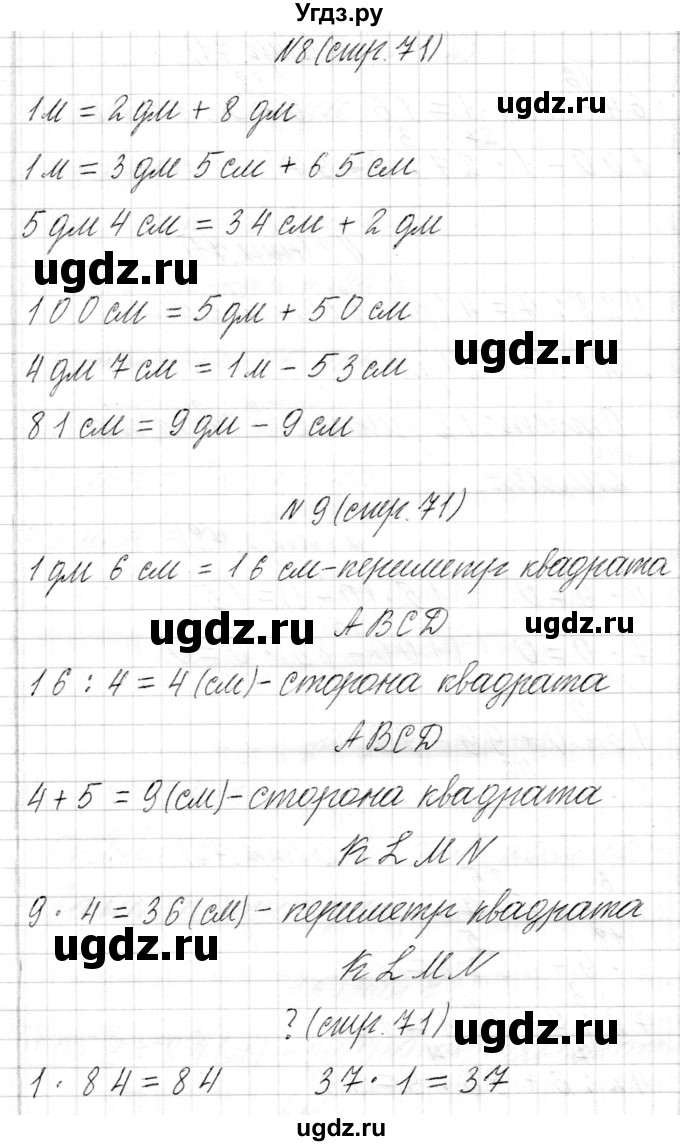 Угдз.ру
№8 (стр. 71)
1м = 2 дм + 8 дм
ugdz.ru
1м = 3 дм 5 см + 65 см
5 дм 4 см = 34 см + 2 дм
ugdz.ru
100 см = 5 дм + 50 см
ugdz.ru
4 дм 7 см = 1м - 53 см
81 см = 9 дм - 9 см
№ 9 (стр. 71)
1 дм 6 см = 16 см - периметр квадрата
ABCD
ugdz.ru
ugdz.ru
16 : 4 = 4 (см) - сторона квадрата
ABCD
4 + 5 = 9 (см) - сторона квадрата
KLMN
9 · 4 = 36 (см) - периметр квадрата
ugdz.ru
KLMN
? (стр. 71)
ugdz.ru
1 · 84 = 84 37 · 1 = 37
ugdz.ru